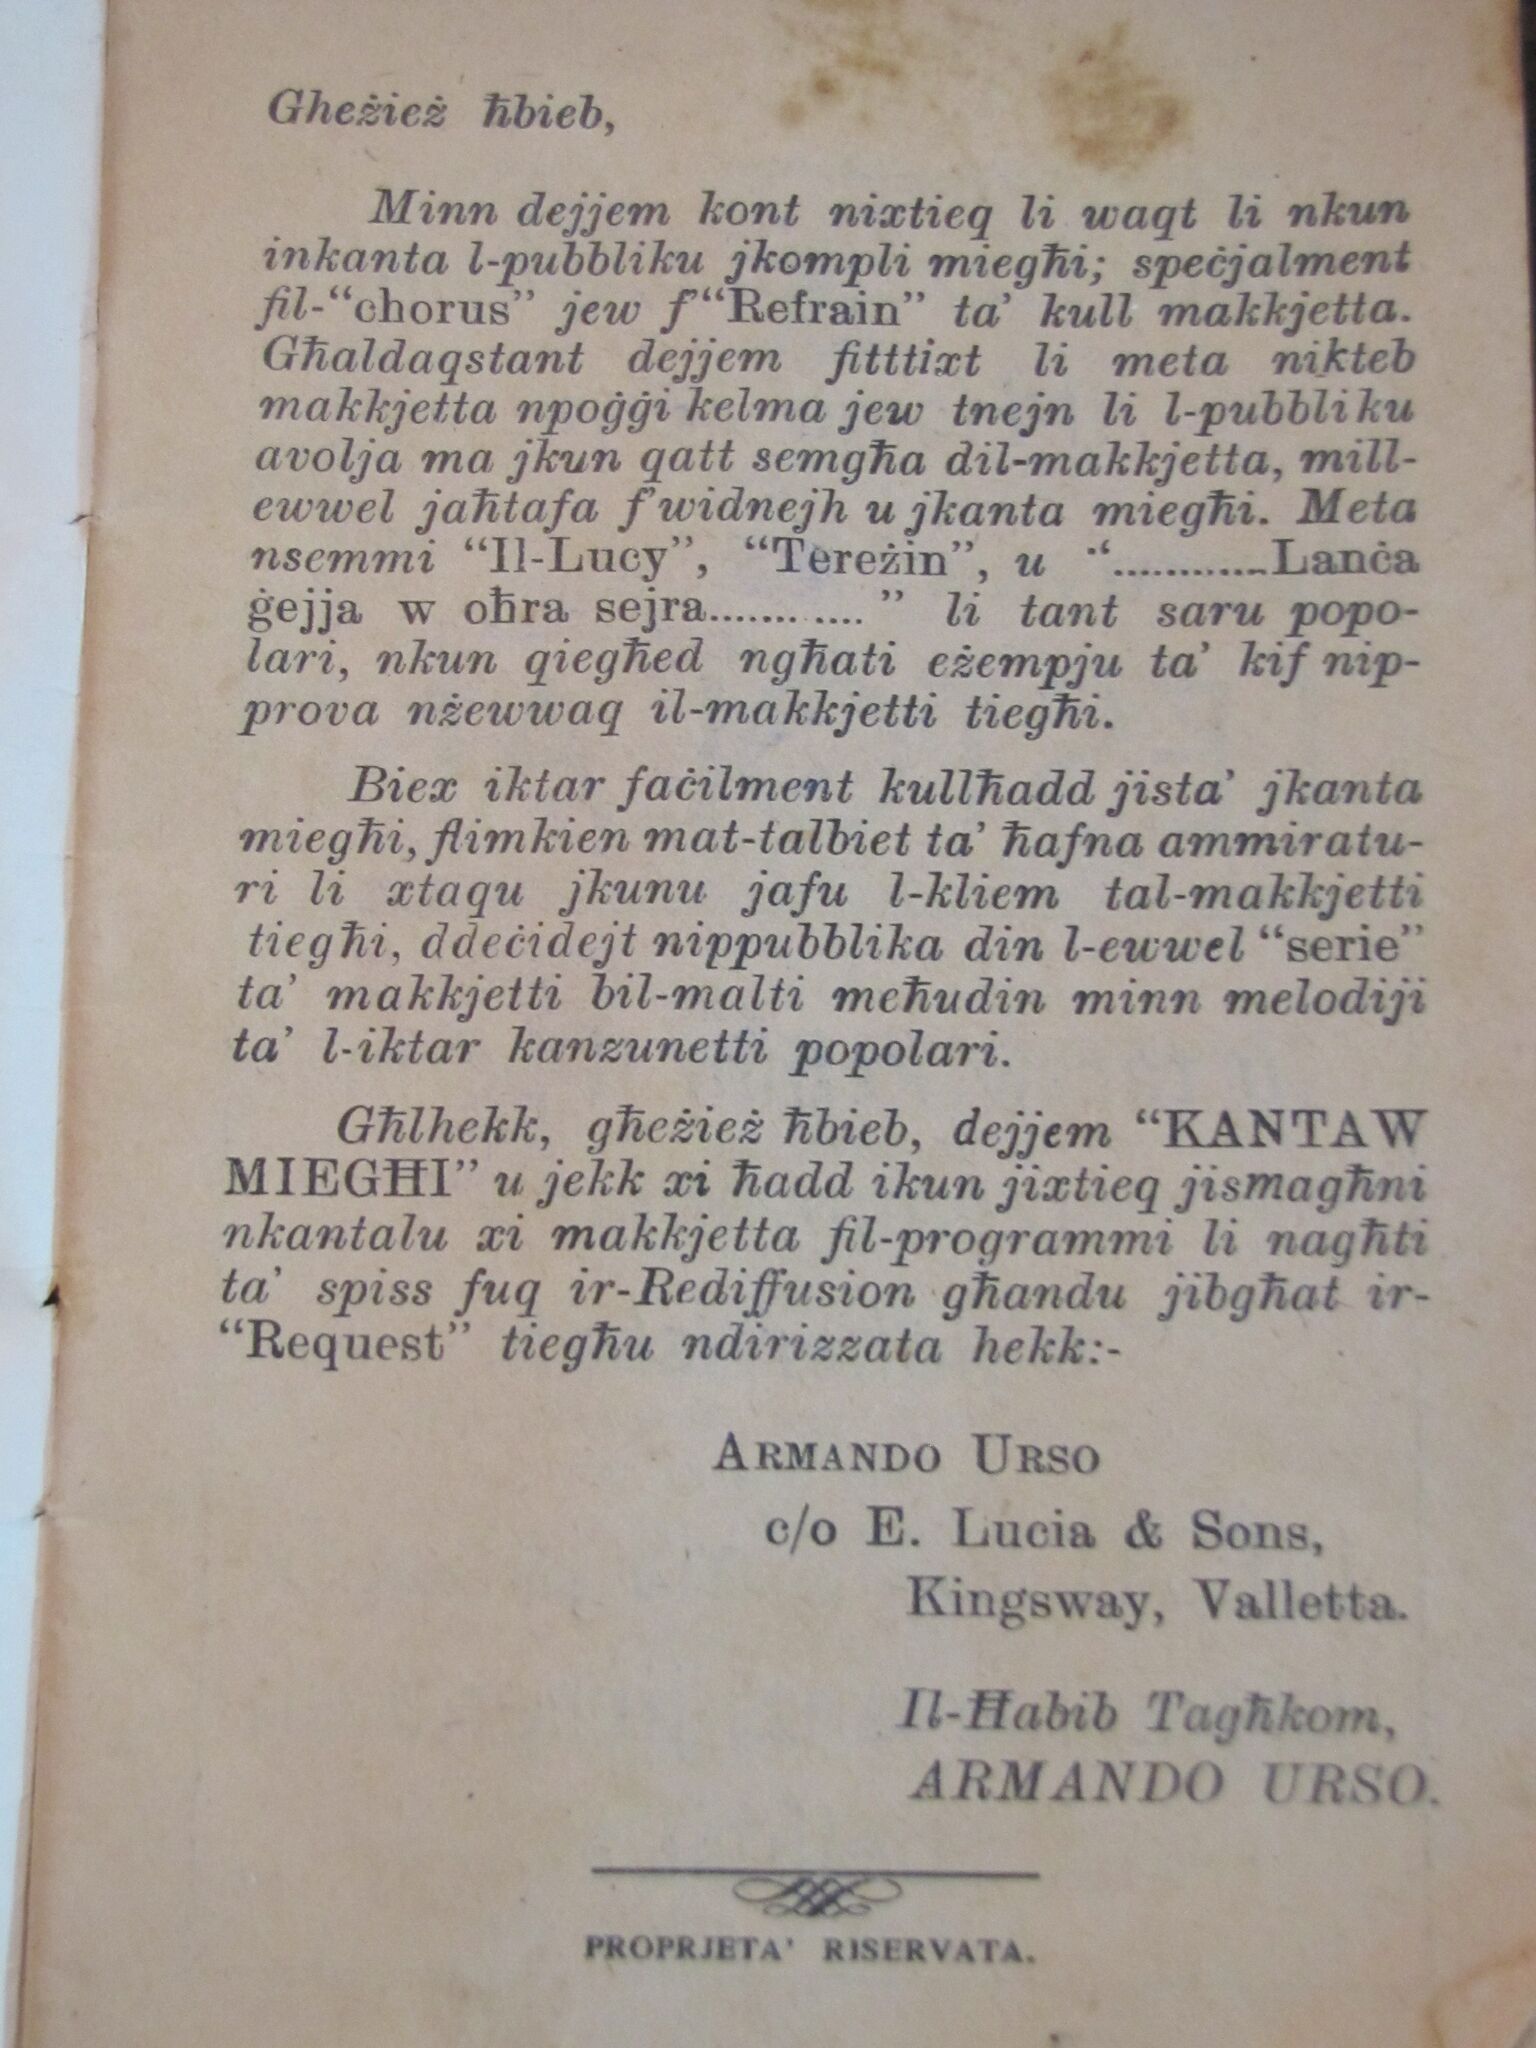 Gheżież ħbieb,
Minn dejjem kont nixtieq li waqt li nkun
inkanta l-pubbliku jkompli miegħi; speċjalment
fil-“chorus” jew f’“Refrain” ta’ kull makkjetta.
Għaldaqstant dejjem fitttixt li meta nikteb
makkjetta npoġġi kelma jew tnejn li l-pubbliku
avolja ma jkun qatt semgħa dil-makkjetta, mill-
ewwel jaħtafa f’widnejh u jkanta miegħi. Meta
nsemmi “Il-Lucy”, “Tereżin”, u “............Lanċa
ġejja w oħra sejra............” li tant saru popo-
lari, nkun qiegħed ngħati eżempju ta’ kif nip-
prova nżewwaq il-makkjetti tiegħi.
Biex iktar faċilment kullħadd jista’ jkanta
miegħi, flimkien mat-talbiet ta’ ħafna ammiratu-
ri li xtaqu jkunu jafu l-kliem tal-makkjetti
tiegħi, ddeċidejt nippubblika din l-ewwel “serie”
ta’ makkjetti bil-malti meħudin minn melodiji
ta’ l-iktar kanzunetti popolari.
Għlhekk, għeżież ħbieb, dejjem “KANTAW
MIEGĦI” u jekk xi ħadd ikun jixtieq jismagħni
nkantalu xi makkjetta fil-programmi li nagħti
ta’ spiss fuq ir-Rediffusion għandu jibgħat ir-
“Request” tiegħu ndirizzata hekk:-
ARMANDO URSO
c/o E. Lucia & Sons,
Kingsway, Valletta.
Il-Ħabib Tagħkom,
ARMANDO URSO.
PROPRJETA’ RISERVATA.